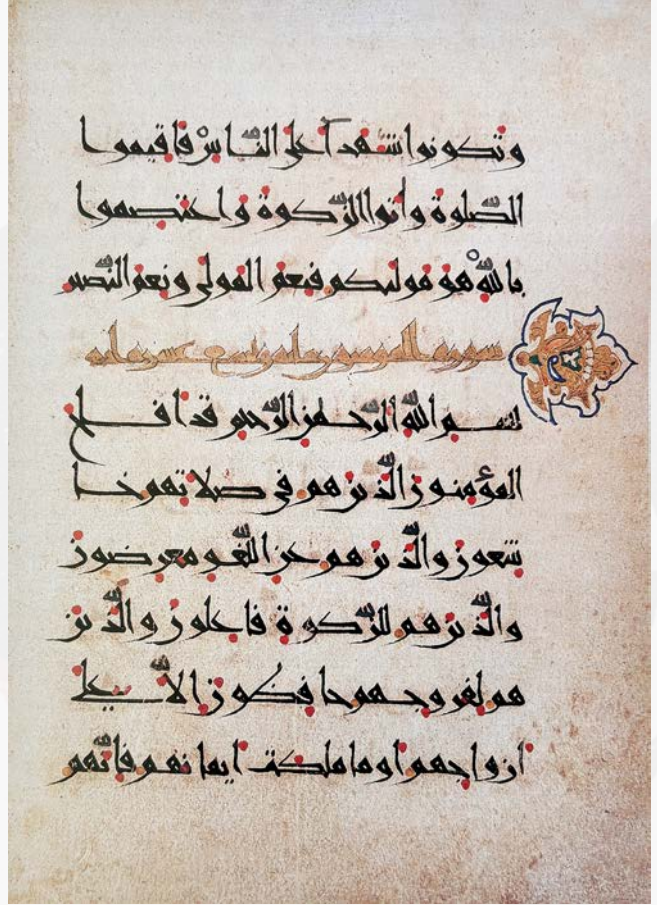 وتكونوا شهدآ على النّاسْ فاقيموا
الصّلوة وأتوا الزّكوة واعتصموا
باللّه هو موليكم فنعم المولى ونعم النّصير
سورة المومنون مايه وتسع عشره ايه
بسم اللّه الرّحمن الرّحيم قد افلح
المؤمنون الّذين هم في صلاتهم خا
شعون والّذين هم عن اللّغو معرضون
والّذين هم للزّكوة فاعلون والّذين
هم لفروجهم حافظون الاّ على
ازواجهم او ما ملكت ايمانهم فانّهم